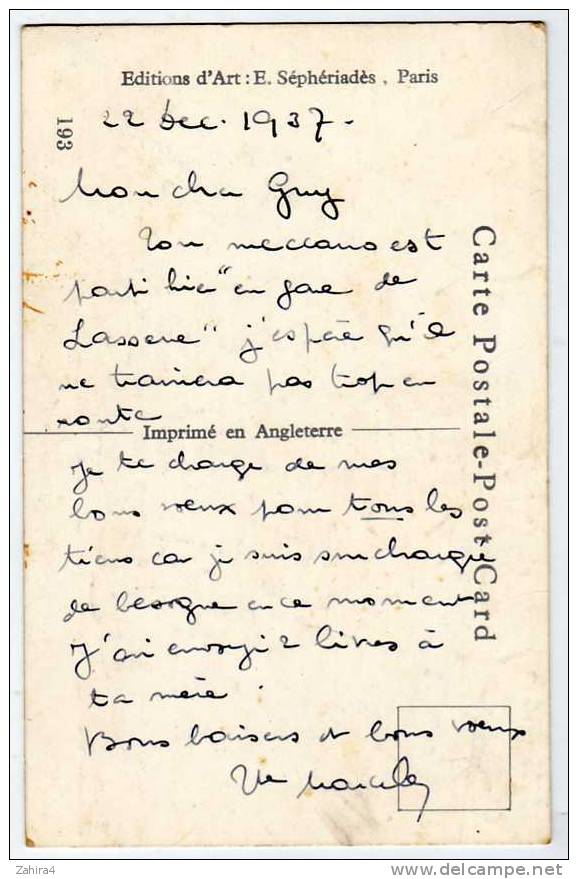 Editions d'Art : E. Séphériadès, Paris
193
22 Dec. 1937.
Mon cher Guy
Ton meccano est
parti hier "en gare de
Lasserre" j'espère qu'il
ne trainera pas trop en
route
Imprimé en Angleterre
Carte Postale-Post Card
Je te charge de mes
bons vœux pour tous les
tiens car je suis surchargée
de besogne en ce moment
J'ai envoyé 2 livres à
ta mère.
Bons baisers et bons vœux
Zahira4
delcampe.net